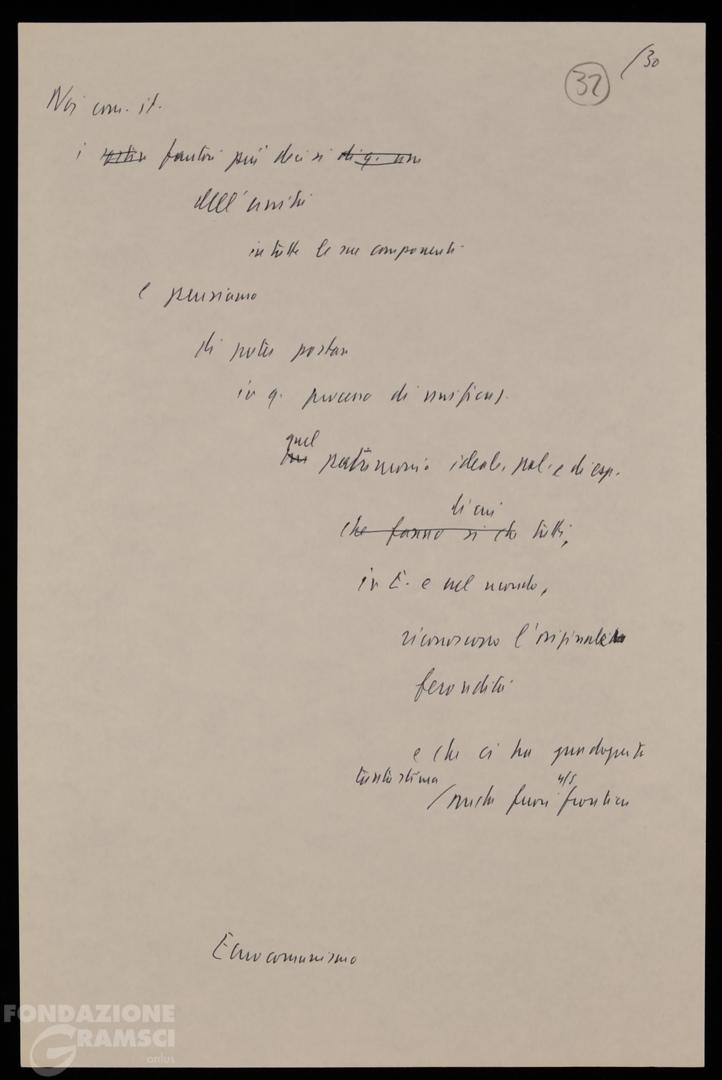 32
/30
Noi com. it.
i fautori più decisi di q. un
dell'unità
in tutte le sue componenti
e pensiamo
di poter portare
in q. processo di unificaz.
quel
un patrimonio ideale, pol. e di esp.
di cui
che fanno si che tutti,
in E. e nel mondo,
riconoscono l'originale
fecondità
e che ci ha guadagnato
tanta stima
/anche fuori frontiere
Eurocomunismo
FONDAZIONE
GRAMSCI
onlus